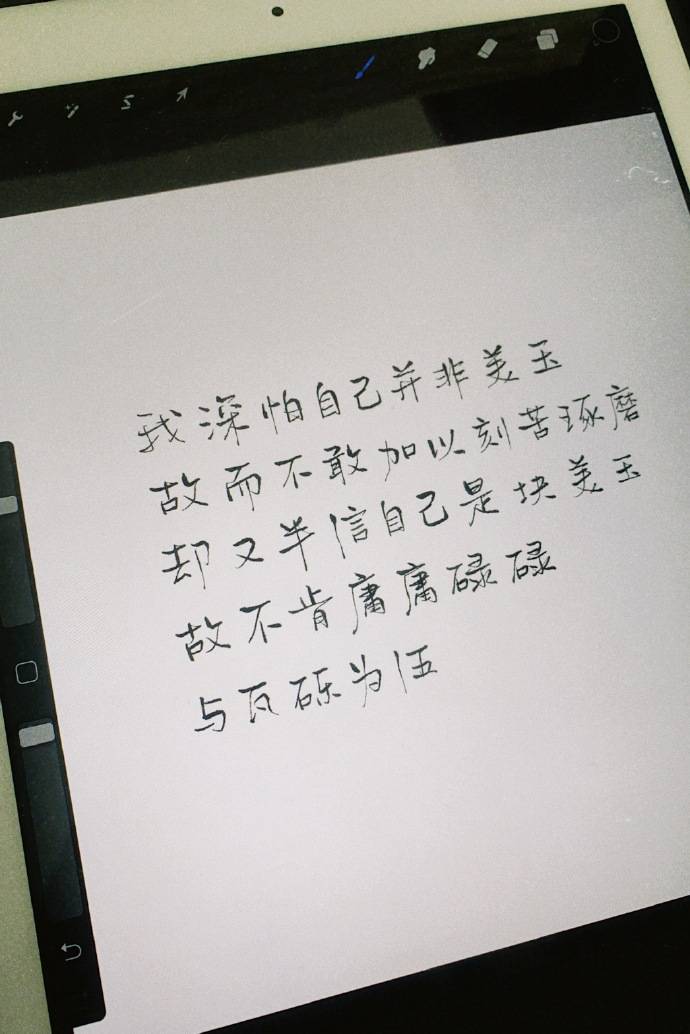 我深怕自己并非美玉
故而不敢加以刻苦琢磨
却又半信自己是块美玉
故不肯庸庸碌碌
与瓦砾为伍